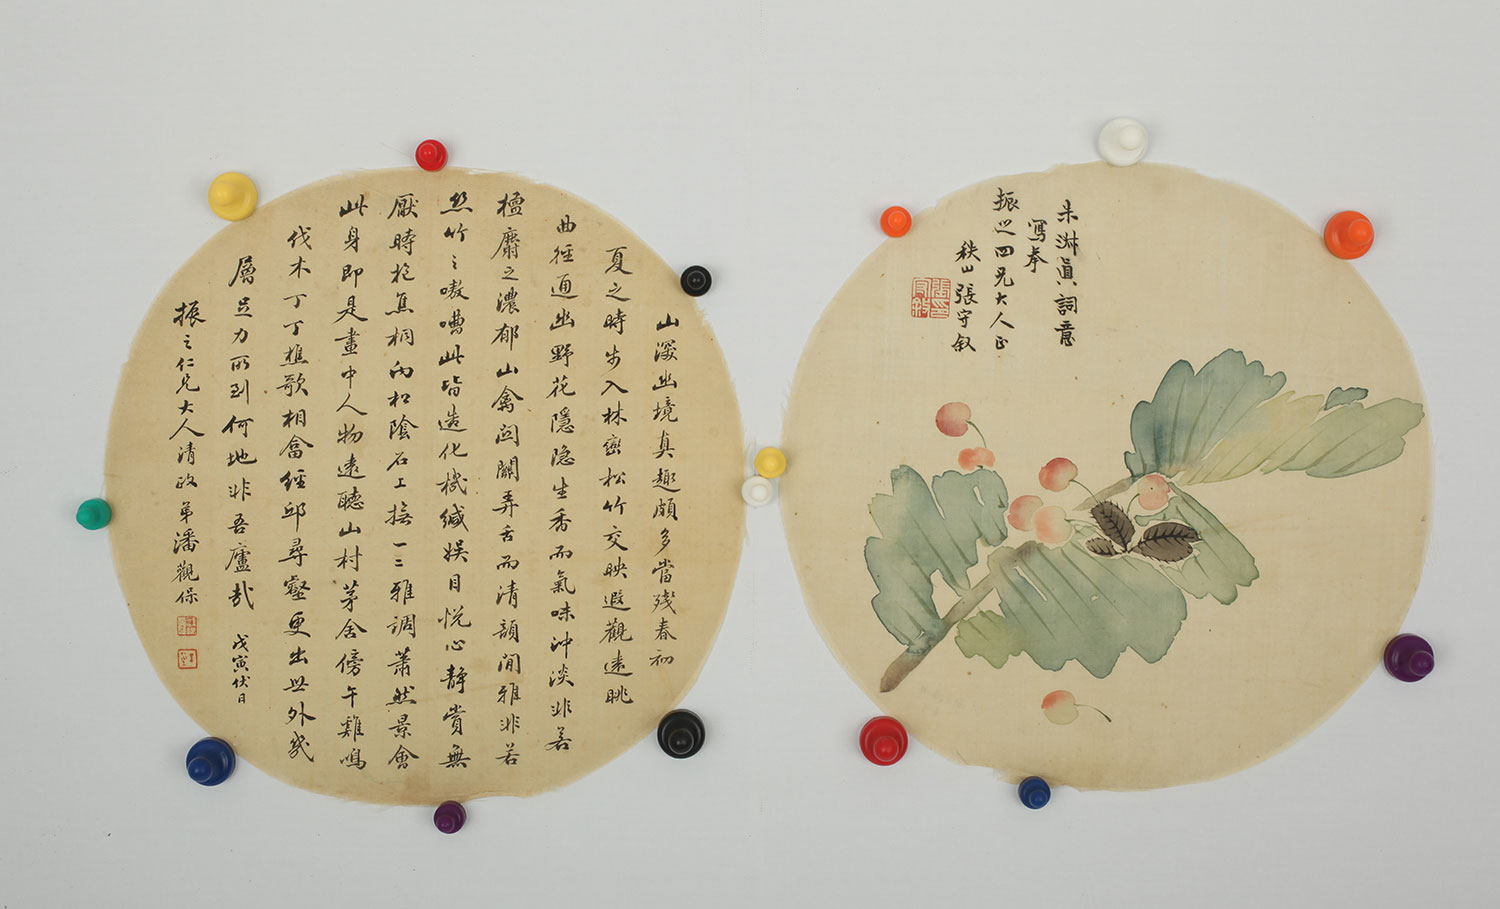 朱淑真詞意
寫奉
振之四兄大人正
秩山張守叙
山深幽境真趣頗多當殘春初
夏之時步入林巒松竹交映遐觀遠眺
曲徑通幽野花隱隱生香而氣味沖淡非若
檀麝之濃郁山禽関關弄舌而清韻閒雅非若
絲竹之嗷嘈此皆造化機緘娛目悅心靜賞無
厭時抱焦桐向松陰石上撫一二雅調蕭然景會
此身即是畫中人物遠聽山村茅舍傍午雞鳴
伐木丁丁樵歌相畣經邱尋壑更出世外幾
層足力所到何地非吾廬哉 戊寅伏日
振之仁兄大人清政 弟潘觀保